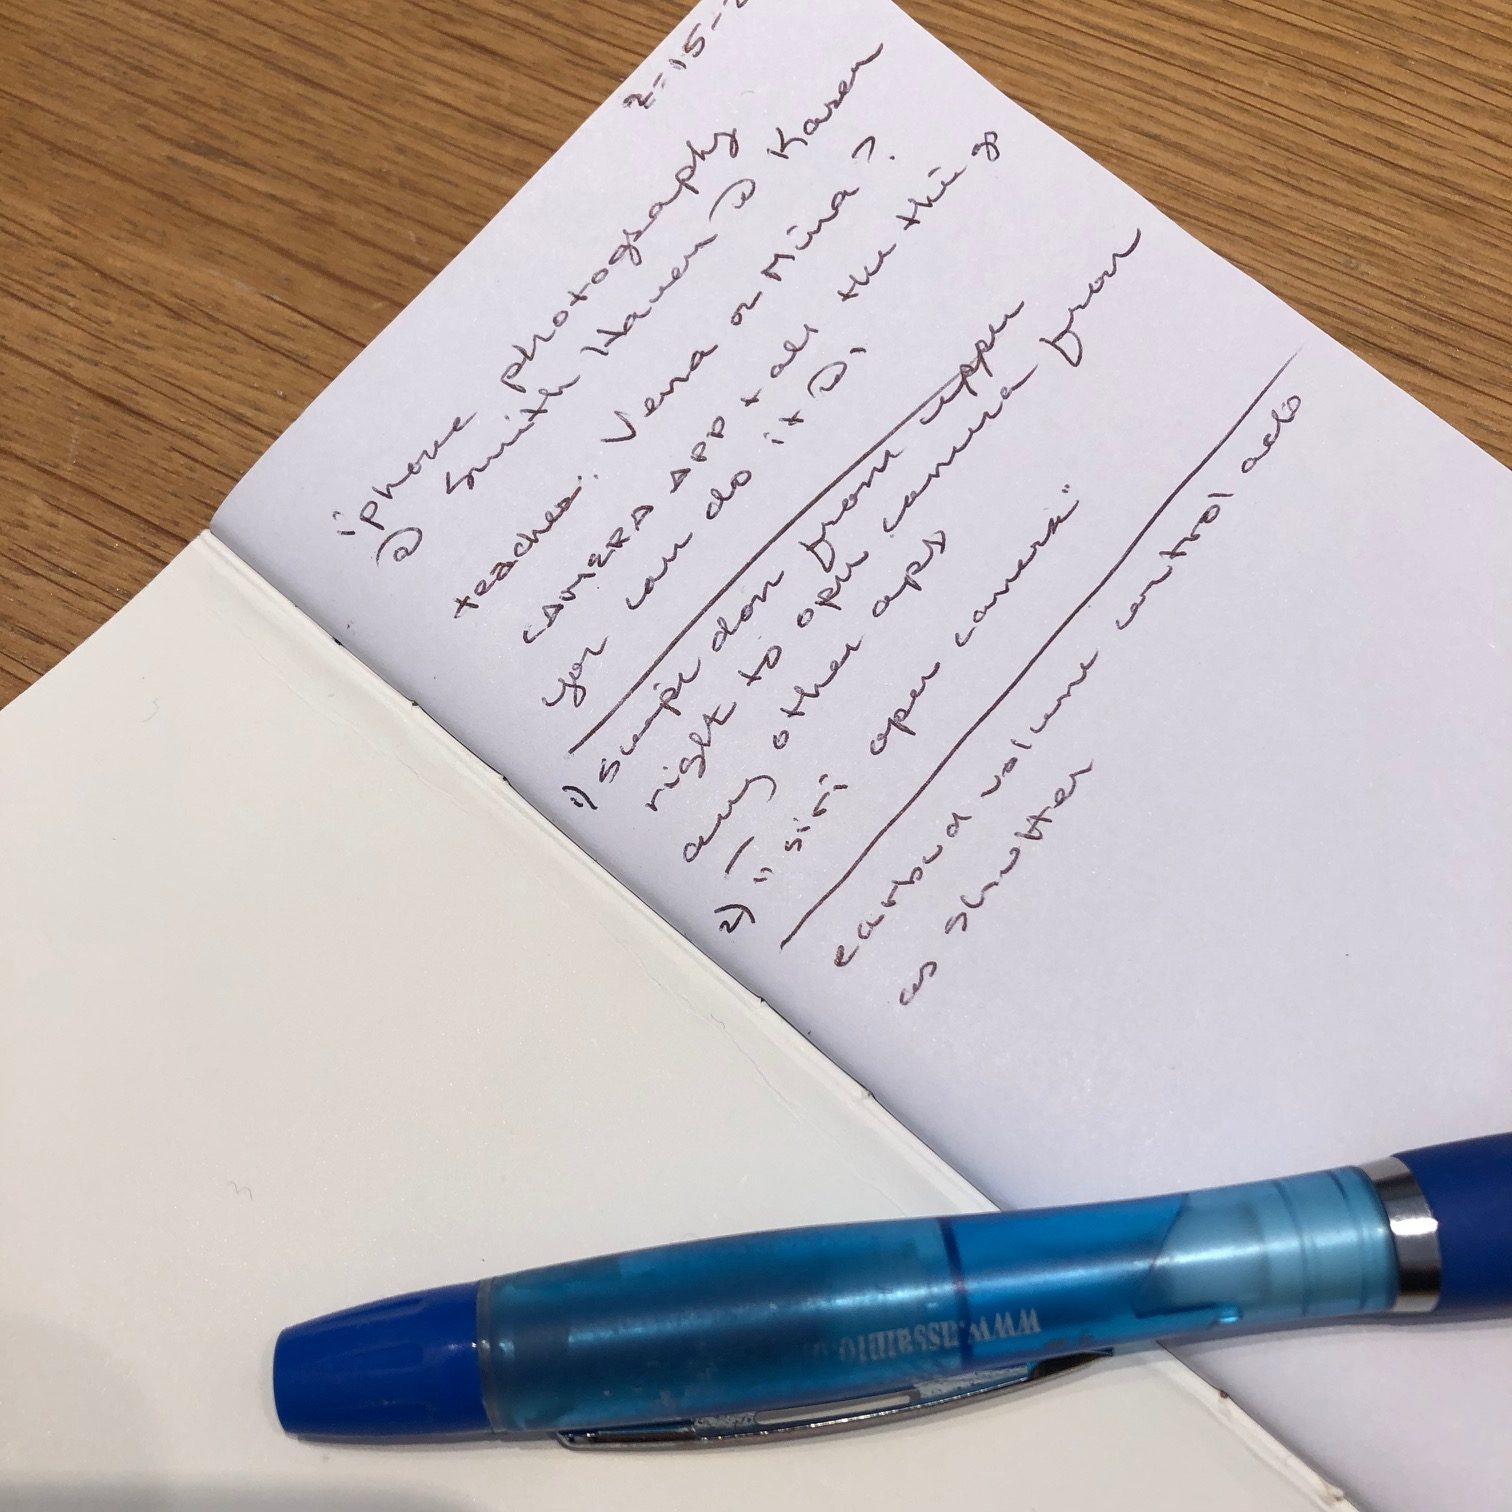 2-15-2
iphone photography
@ Smith Haven @ Karen
teacher: Vera or Mina?
CAMERA APP + all the things
you can do it @.
1) swipe down from upper
right to open camera from
any other apps
2) "siri open camera"
earbud volume control acts
as shutter